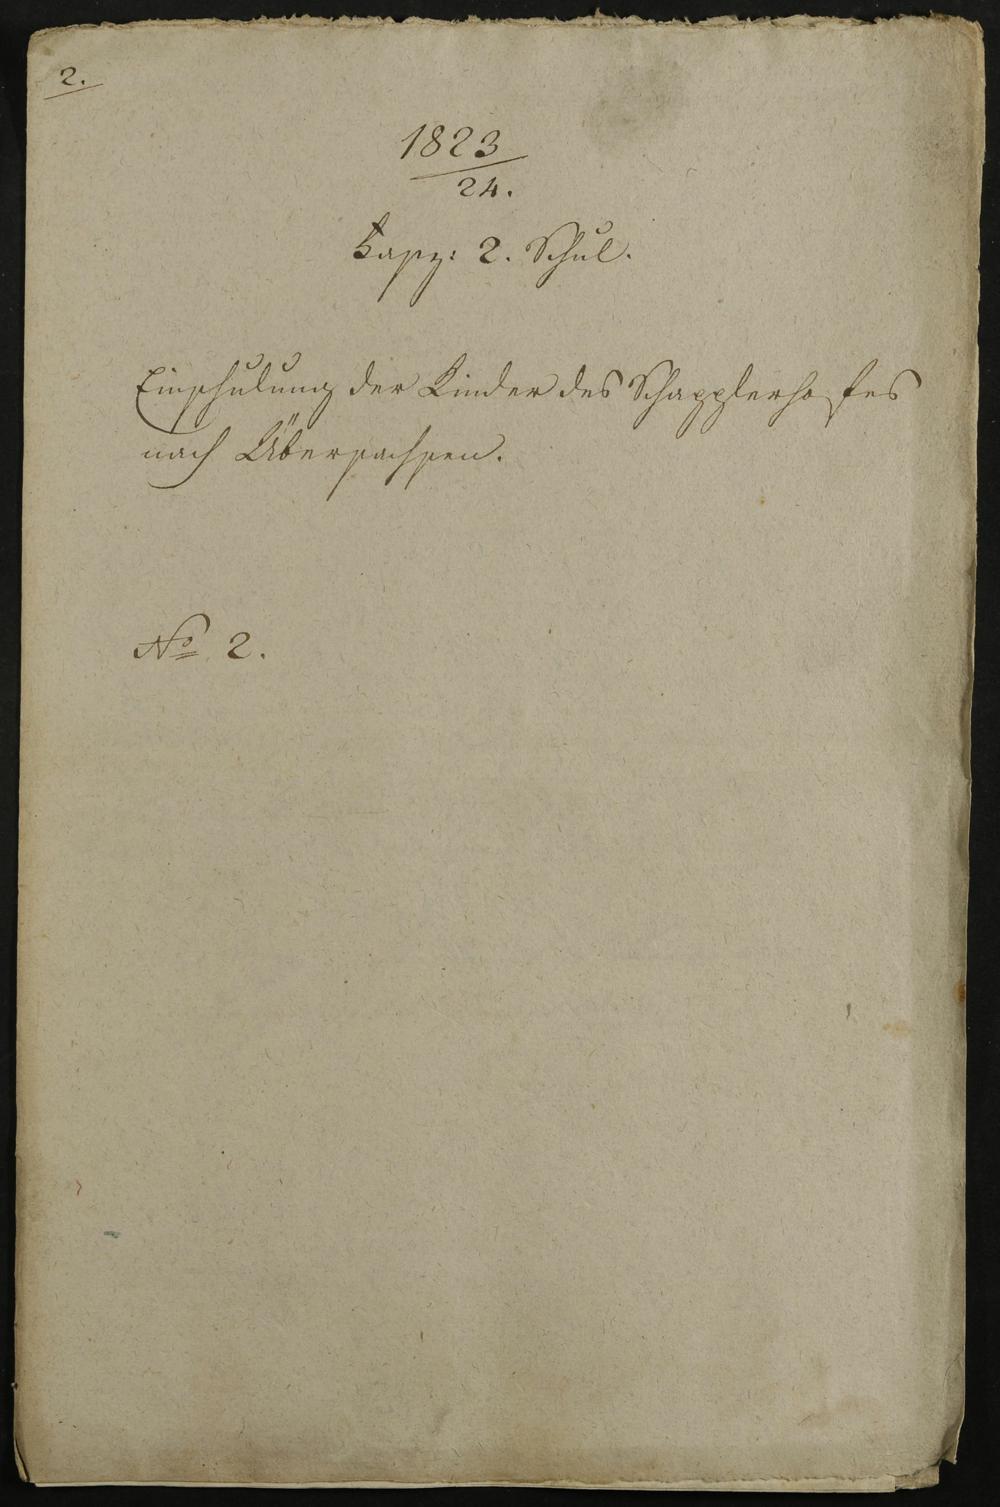 2.
1823
24.
Fasz: 2. Schul.
Einschulung der Kinder des Schapplerhofes
nach Überpachsen.
No 2.